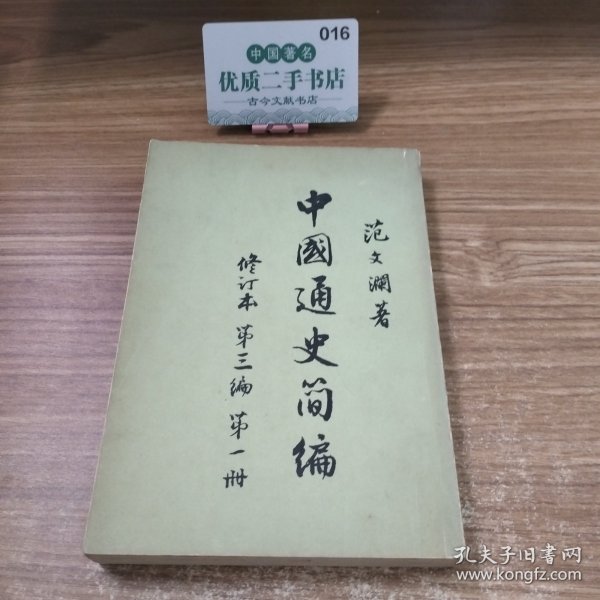 016
中国著名
优质二手书店
古今文献书店
范文瀾著
中國通史简编
修订本 第三编 第一册
孔夫子旧书网
www.kongfz.com